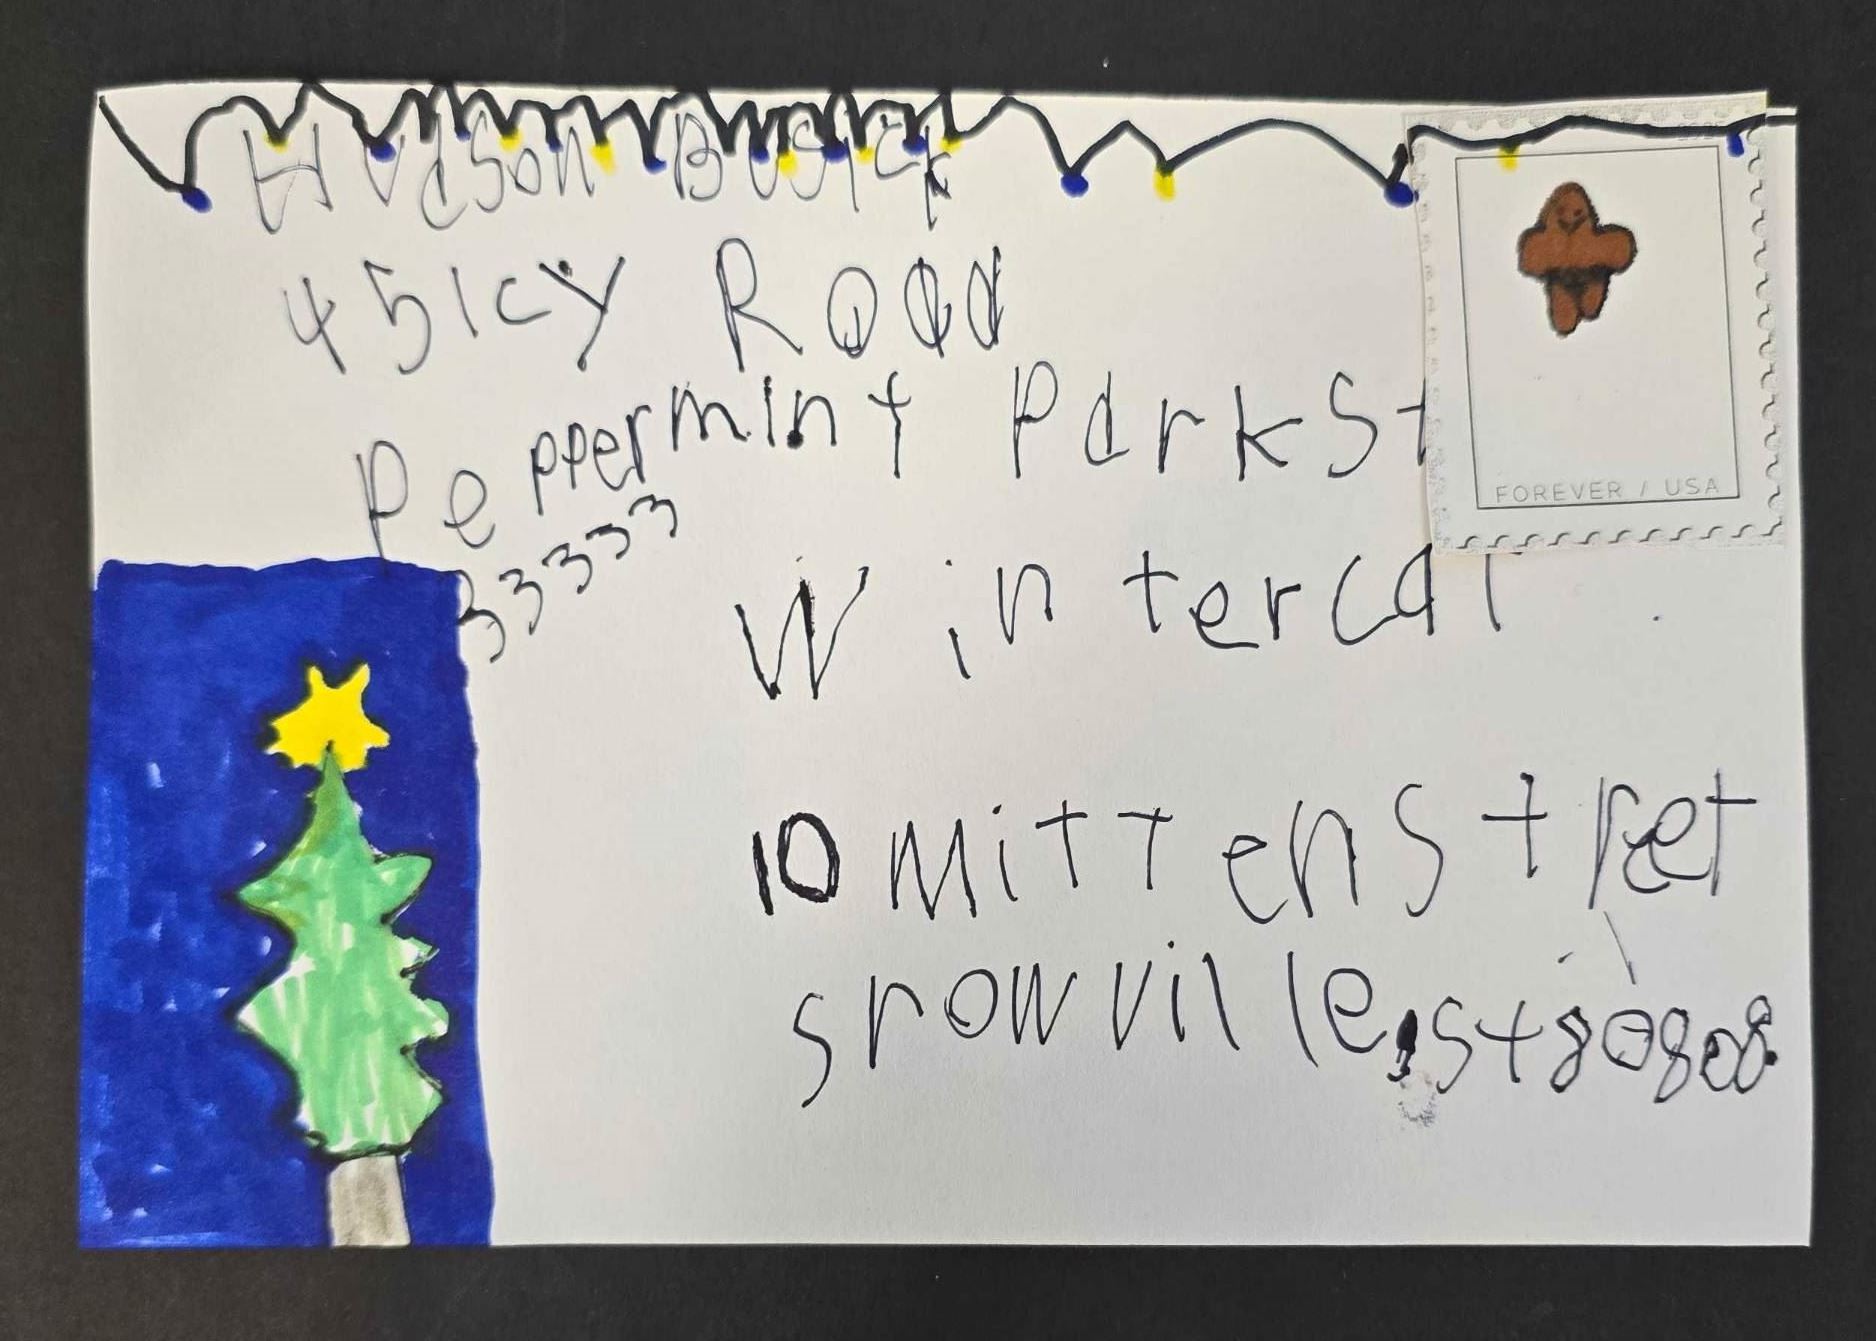 Hudson Busick
45 Icy Road
Peppermint Park St
33333
FOREVER / USA
Winter Cat
10 Mitten Street
Snowville, St 80808